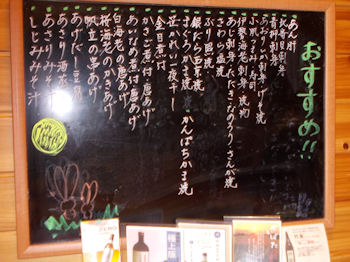 おすすめ!!
あん肝
青柳刺身
あおりいか刺身・げそ焼
小肌すみ
伊勢海老刺身
あじ刺身・たたき・なめろう・さんが焼
さわら塩焼
ぶり照焼
銀だら西京焼
まぐろかま焼 かんぱちかま焼
笹かれい一夜干し
金目煮付
かさご煮付・唐あげ
あいなめ煮付・唐あげ
白海老の唐あげ
桜海老のかきあげ
帆立の串あげ
あげだし豆腐
あさり酒蒸
あさりみそ汁
しじみみそ汁